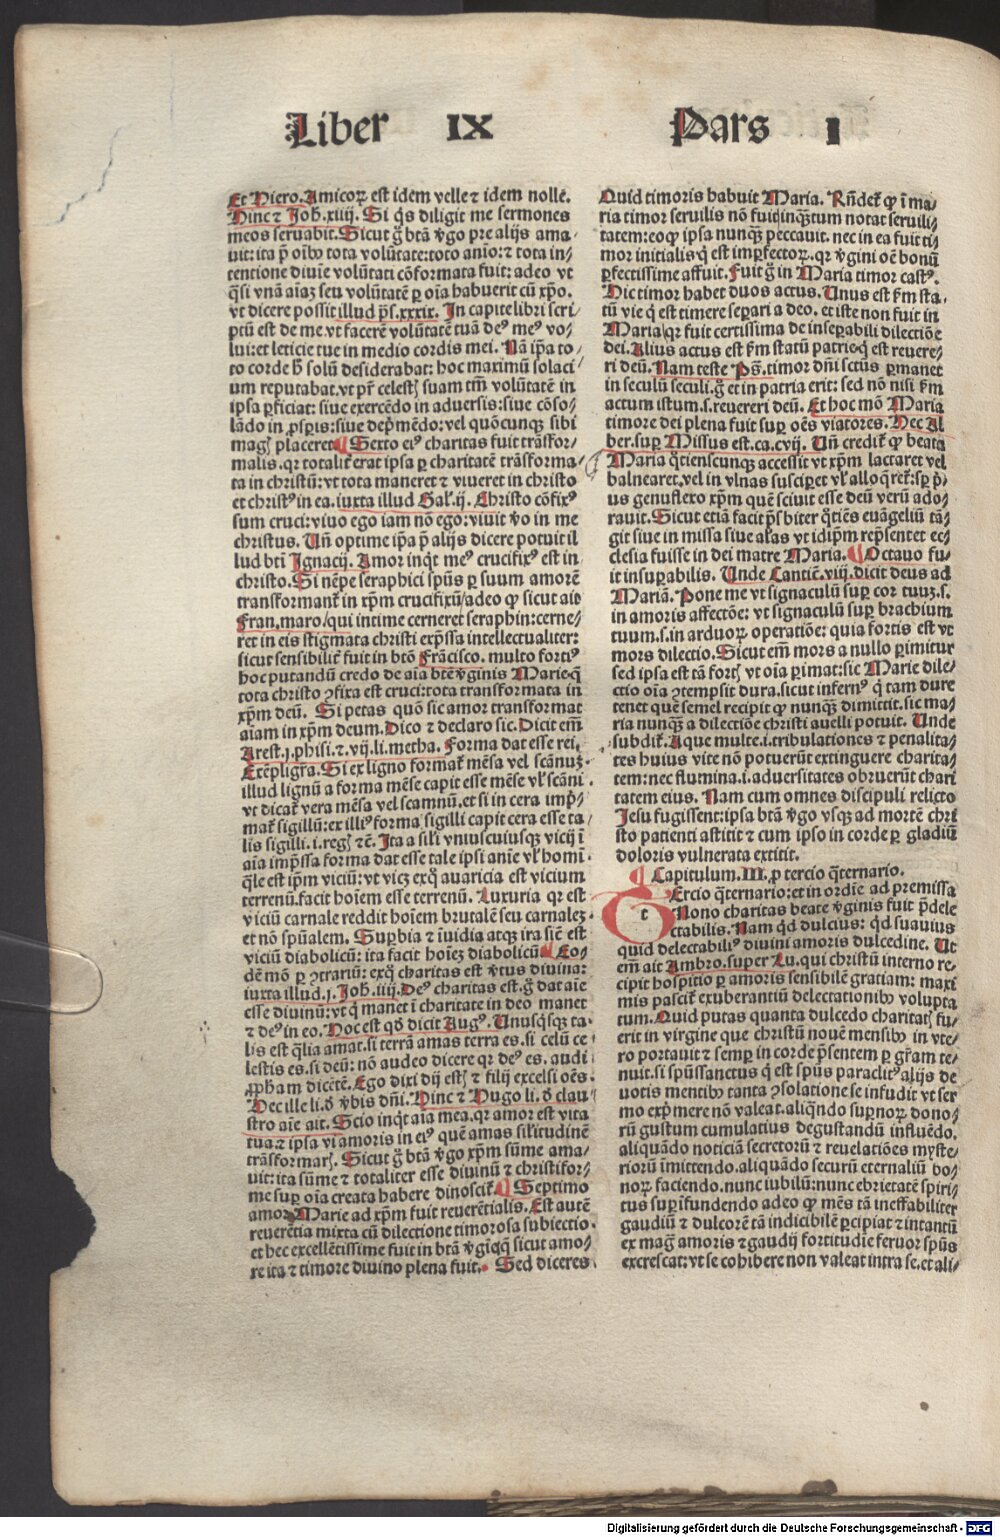 Liber IX Pars I
Et Hiero. Amicoꝝ est idem velle ⁊ idem nolle.
Hinc ⁊ Joh̄. xiiij. Si q̄s diligit me sermones
meos seruabit. Sicut g̃ btā v̄go pre alijs ama⸗
uit: ita p̄ oīb᷒ tota volūtate: toto anīo: ⁊ tota in⸗
tentione diuīe volūtati cōformata fuit: adeo vt
q̄si vnā aīaꝫ seu volūtatē ꝑ oīa habuerit cū xp̄o.
vt dicere possit illud p̄s. xxxix. In capite libri scri
ptū est de me. vt facerē volūtatē tuā de᷒ me᷒ vo⸗
lui: et leticie tue in medio cordis mei. Nā ip̄a to⸗
to corde h̄ solū desiderabat: hoc maximū solaci⸗
um reputabat. vt pr̄ celestꝭ suam tm̄ volūtatē in
ipsa ꝑficiat: siue exercēdo in aduersis: siue cōso⸗
lādo in ꝓsꝑis: siue dep̄mēdo: vel quōcunqꝫ sibi
magꝭ placeret. Sexto ei᷒ charitas fuit trāsfor⸗
malis. qr totalit̄ erat ipsa ꝑ charitatē trāsforma⸗
ta in christū: vt tota maneret ⁊ viueret in christo
et christ᷒ in ea. iuxta illud Gal̄. ij. Christo cōfix᷒
sum cruci: viuo ego iam nō ego: viuit v̄o in me
christus. Un̄ optime ip̄a p̄ alijs dicere potuit il
lud bt̄i Ignacij. Amor inqͥt me᷒ crucifix᷒ est in
christo. Si nēpe seraphici spūs ꝑ suum amorē
transformant̄ in xp̄m crucifixū/ adeo ꝙ sicut ait
Fran. maro/ qui intime cerneret seraphin: cerne⸗
ret in eis stigmata christi exp̄ssa intellectualiter:
sicut sensibilit̄ fuit in btō Frācisco. multo forti᷒
hoc putandū credo de aīa btē v̄ginis Marie: q̄
tota christo ꝯfixa est cruci: tota transformata in
xp̄m deū. Si petas quō sic amor transformat
aīam in xp̄m deum. Dico ⁊ declaro sic. Dicit em̄
Arest. j. phisi. ⁊. vij. li. metha. Forma dat esse rei.
Exēpligr̄a. Si ex ligno format̄ mēsa vel scānuꝫ.
illud lignū a forma mēse capit esse mēse vl̄ scāni.
vt dicat̄ vera mēsa vel scamnū. et si in cera imp̄⸗
mat̄ sigillū: ex illi᷒ forma sigilli capit cera esse ta⸗
lis sigilli. i. regꝭ ⁊c̄. Ita a sil̄i vniuscuiusqꝫ vicij ī
aīa imp̄ssa forma dat esse tale ipsi anīe vl̄ homī.
q̄le est ip̄m viciū: vt vicꝫ exq̄ auaricia est vicium
terrenū. facit hoīem esse terrenū. Luxuria qr est
viciū carnale reddit hoīem brutalē seu carnaleꝫ.
et nō spūalem. Suꝑbia ⁊ īuidia atqꝫ ira siē est
viciū diabolicū: ita facit hoīeꝫ diabolicū. Eo⸗
dē mō ꝑ ꝯtrariū: exq̄ charitas est v̄tus diuina:
iuxta illud. j. Joh̄. iiij. De᷒ charitas est. g̃ dat aīe
esse diuinū: vt q̄ manet ī charitate in deo manet
⁊ de᷒ in eo. Hoc est qd̄ dicit Aug᷒. Unusqͥsqꝫ ta⸗
lis est q̄lia amat. si terrā amas terra es. si celū ce
lestis es. si deū: nō audeo dicere qr de᷒ es. audi
ꝓph̄am dicētē. Ego dixi dij estꝭ ⁊ filij excelsi oēs.
Hec ille li. d̄ v̄bis dn̄i. Hinc ⁊ Hugo li. d̄ clau
stro aīe ait. Scio inqͥt aīa mea. qr amor est vita
tua. ⁊ ipsa vi amoris in ei᷒ quē amas sil̄itudinē
trāsformarꝭ. Sicut g̃ btā v̄go xp̄m sūme ama⸗
uit: ita sūme ⁊ totaliter esse diuinū ⁊ christifor⸗
me suꝑ oīa creata habere dinoscit̄. Septimo
amor Marie ad xp̄m fuit reuerētialis. Est autē
reuerētia mixta cū dilectione timorosa subiectio.
et hec excellētissime fuit in btā v̄giē. qꝫ sicut amo⸗
re ita ⁊ timore diuino plena fuit. Sed diceres
Quid timoris habuit Maria. Rn̄det̄ ꝙ ī ma⸗
ria timor seruilis nō fuit inq̄ꝫtum notat seruili⸗
tatem: eo ꝙ ipsa nunqꝫ̄ peccauit. nec in ea fuit ti⸗
mor initialis qͥ est imꝑfectoꝝ. qr v̄gini oē bonū
ꝑfectissime affuit. Fuit g̃ in Maria timor cast᷒.
Hic timor habet duos actus. Unus est ẜm sta⸗
tū vie q̄ est timere seꝑari a deo. et iste non fuit in
Maria/ qr fuit certissima de inseꝑabili dilectiōe
dei. Alius actus est ẜm statū patrie: q̄ est reuere⸗
ri deū. Nam teste Ps̄. timor dn̄i sctūs ꝑmanet
in seculū seculi. g̃ et in patria erit: sed nō nisi ẜm
actum istum. s. reuereri deū. Et hoc mō Maria
timore dei plena fuit suꝑ oēs viatores. Hec Al
ber. suꝑ Missus est. ca. cvij. Un̄ credit̄ ꝙ beata
Maria q̄tienscunqꝫ accessit vt xp̄m lactaret vel
balnearet. vel in vlnas susciꝑet vl̄ alloq̄ret̄: sꝑ p̄⸗
us genuflexo xp̄m quē sciuit esse deū verū ado⸗
rauit. Sicut etiā facit p̄sbiter q̄tiēs euāgeliū tā⸗
git siue in missa siue al̄as vt idip̄m rep̄sentet ec⸗
clesia fuisse in dei matre Maria. Octauo fu⸗
it insuꝑabilis. Unde Cantic̄. viij. dicit deus ad
Mariā. Pone me vt signaculū suꝑ cor tuuꝫ. s.
in amoris affectōe: vt signaculū suꝑ brachium
tuum. s. in arduoꝝ operatiōe: quia fortis est vt
mors dilectio. Sicut em̄ mors a nullo ꝑimitur
sed ipsa est tā fortꝭ vt oīa ꝑimat: sic Marie dile⸗
ctio oīa ꝯtempsit dura. sicut infern᷒ qͥ tam dure
tenet quē semel recipit ꝙ nunqꝫ̄ dimittit. sic ma⸗
ria nunqꝫ̄ a dilectiōe christi auelli potuit. Unde
subdit̄. Aque multe. i. tribulationes ⁊ penalita⸗
tes huius vite nō potuerūt extinguere charita⸗
tem: nec flumina. i. aduersitates obruerūt chari
tatem eius. Nam cum omnes discipuli relicto
Jesu fugissent: ipsa btā v̄go vsqꝫ ad mortē chri
sto patienti astitit ⁊ cum ipso in corde ꝑ gladiū
doloris vulnerata extitit.
Capitulum. III. ꝓ tercio q̄ternario.
TErcio q̄ternario: et in ordīe ad premissa
Nono charitas beate v̄ginis fuit p̄dele
ctabilis. Nam qͥd dulcius: qͥd suauius
quid delectabili᷒ diuini amoris dulcedine. Ut
em̄ ait Ambro. super Lu. qui christū interno re⸗
cipit hospitio ꝑ amoris sensibilē gratiam: maxi
mis pascit̄ exuberantiū delectationib᷒ volupta
tum. Quid putas quanta dulcedo charitatꝭ fu⸗
erit in virgine que christū nouē mensib᷒ in vte⸗
ro portauit ⁊ semꝑ in corde p̄sentem ꝑ gr̄am te⸗
nuit. si spūssanctus qͥ est spūs paraclit᷒ alijs de
uotis mentib᷒ tanta ꝯsolatione se infudit vt ser
mo exp̄mere nō valeat. aliqn̄do suꝑnoꝝ dono⸗
rū gustum cumulatius degustandū influēdo.
aliquādo noticiā secretorū ⁊ reuelatiōes myste⸗
riorū īmittendo. aliquādo securū eternaliū bo⸗
noꝝ faciendo. nunc iubilū: nunc ebrietatē spiri⸗
tus suꝑīfundendo adeo ꝙ mēs tā ineffabiliter
gaudiū ⁊ dulcorē tā indicibilē ꝑcipiat ⁊ intantū
ex magꝭ amoris ⁊ gaudij fortitudīe feruor spūs
excrescat: vt se cohibere non valeat intra se. et ali⸗
Digitalisierung gefördert durch die Deutsche Forschungsgemeinschaft - DFG